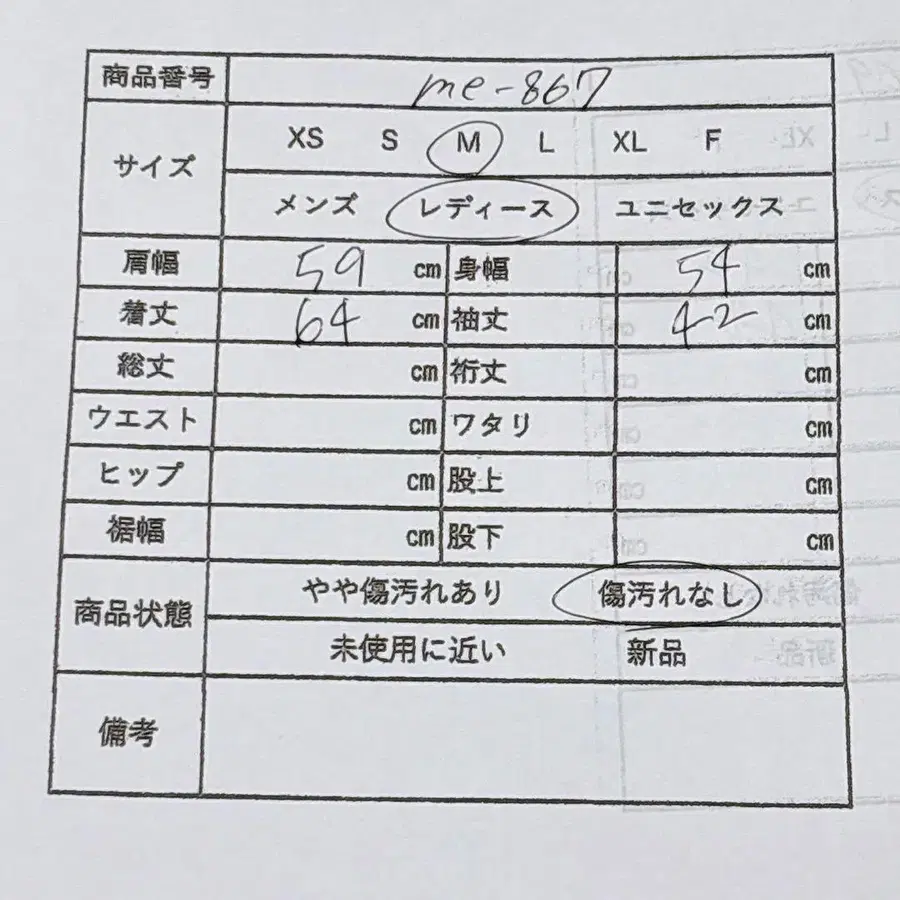 商品番号 me-867
サイズ XS S M L XL F
メンズ レディース ユニセックス
肩幅 59 cm 身幅 54 cm
着丈 64 cm 袖丈 42 cm
総丈 cm 裄丈 cm
ウエスト cm ワタリ cm
ヒップ cm 股上 cm
裾幅 cm 股下 cm
商品状態 やや傷汚れあり 傷汚れなし
未使用に近い 新品
備考